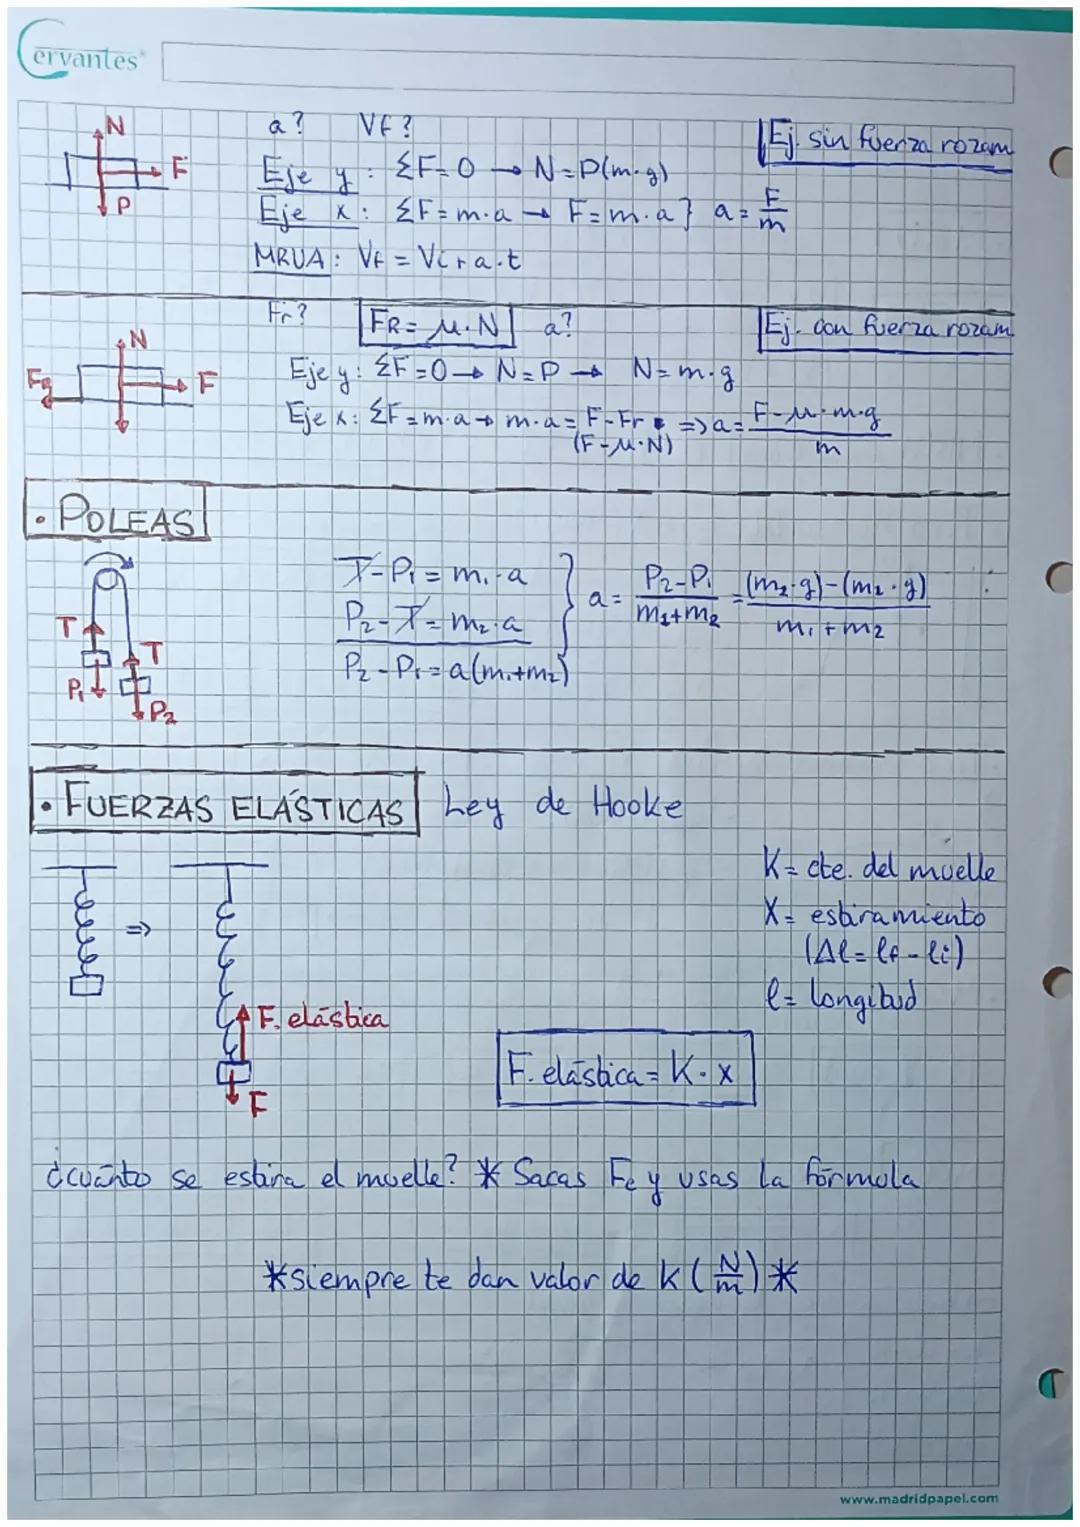 Cervantes
N
F
P
a? Vf?
Ej. sin fuerza rozam
Eje y: ΣF=0 → N=P(m·g)
Eje x: ΣF=m·a → F=m·a} a=F/m
MRUA: Vf = Vi+a·t
Fr? FR= μ·N a?
Ej. con fuerza rozam
N
F
Eje y: ΣF=0 → N=P → N=m·g
Eje x: ΣF=m·a → m·a= F-Fr => a= F-μ·m·g/m
(F-μ·N)
• POLEAS
T-P1=m1·a
P2-T=m2·a
P2-P1=a(m1+m2)
a= P2-P1/m1+m2 = (m2·g)-(m2·g)/m1+m2
T
T
P1
P2
• FUERZAS ELÁSTICAS Ley de Hooke
K= cte. del muelle
X= estiramiento
(Δl= lf-li)
l= longitud
=>
F. elástica
F
F. elástica= K·x
¿cuánto se estira el muelle? * Sacas Fe y usas la fórmula
*siempre te dan valor de K (N/m) *
www.madridpapel.com